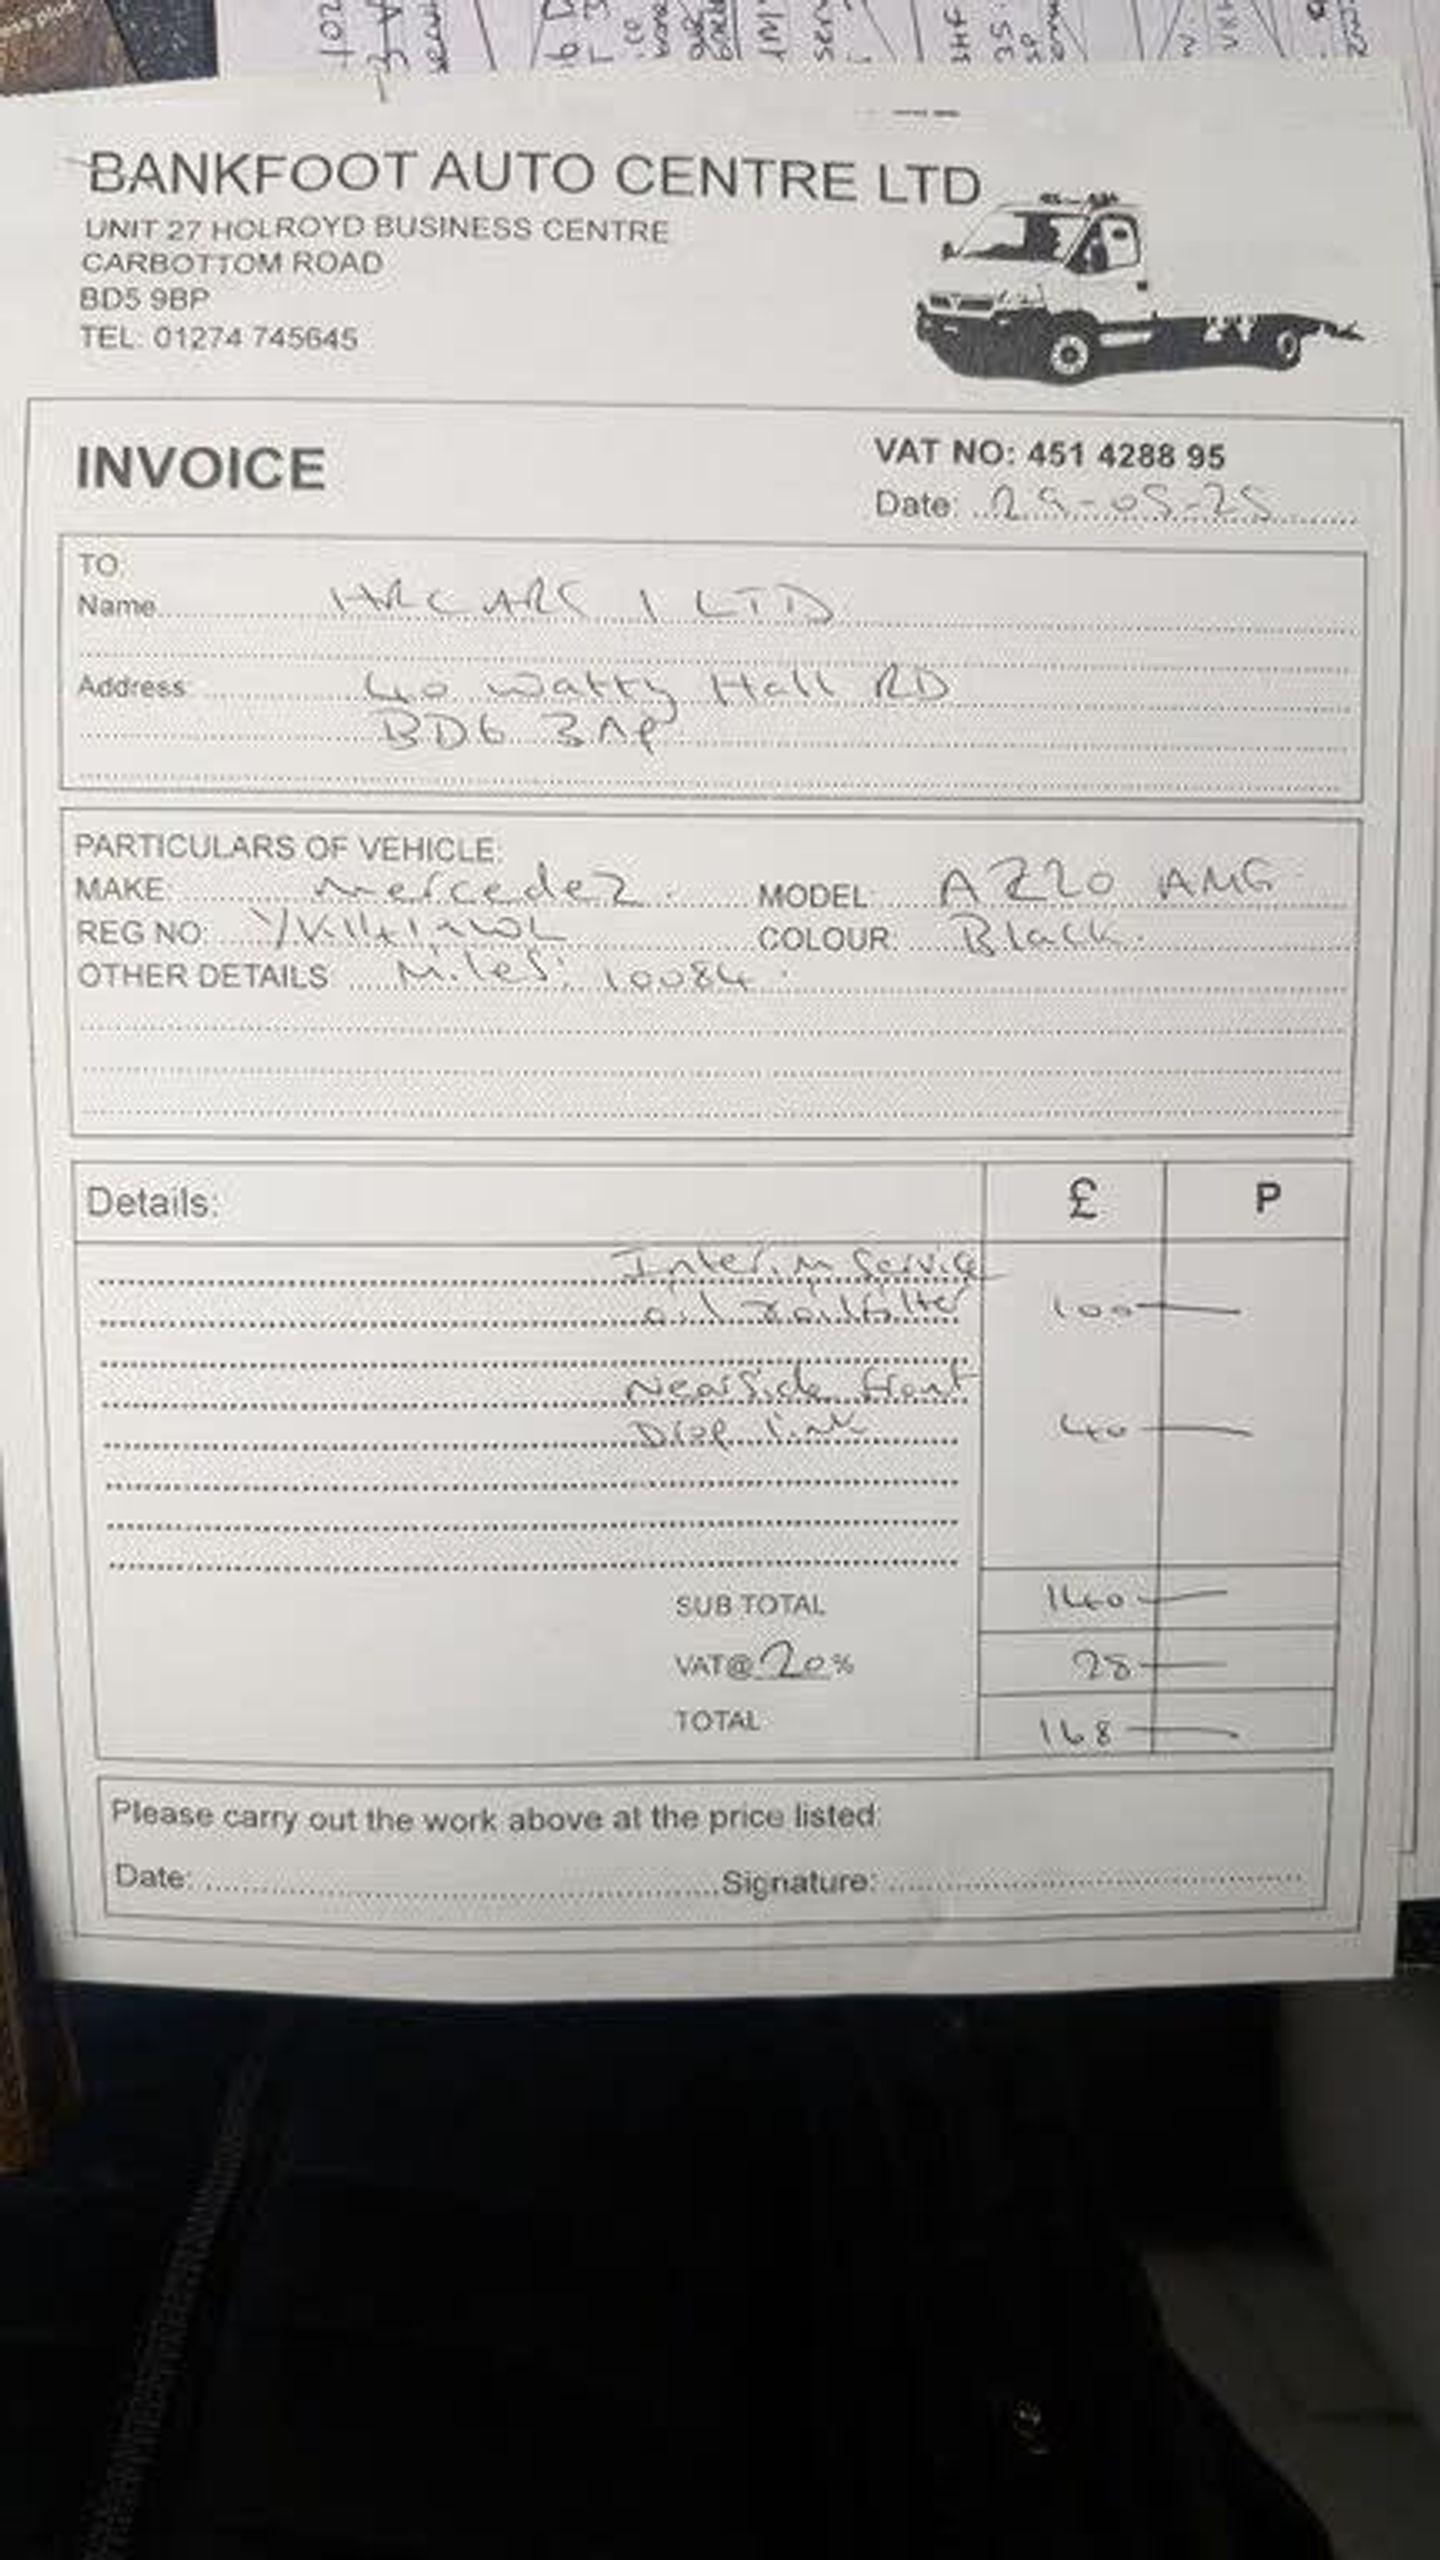 BANKFOOT AUTO CENTRE LTD
UNIT 27 HOLROYD BUSINESS CENTRE
CARBOTTOM ROAD
BD5 9BP
TEL: 01274 745645
INVOICE
VAT NO: 451 4288 95
Date: 29-05-25
TO:
Name HRCARS 1 LTD
Address 40 Watty Hall RD
BD6 3AP
PARTICULARS OF VEHICLE:
MAKE: Mercedez MODEL: A220 AMG
REG NO: COLOUR: Black
OTHER DETAILS Miles: 10084
Details: £ P
Interim Service
oil & oil filter 100
Nearside front
Drop link 40
SUB TOTAL 140
VAT@ 20% 28
TOTAL 168
Please carry out the work above at the price listed:
Date: Signature: